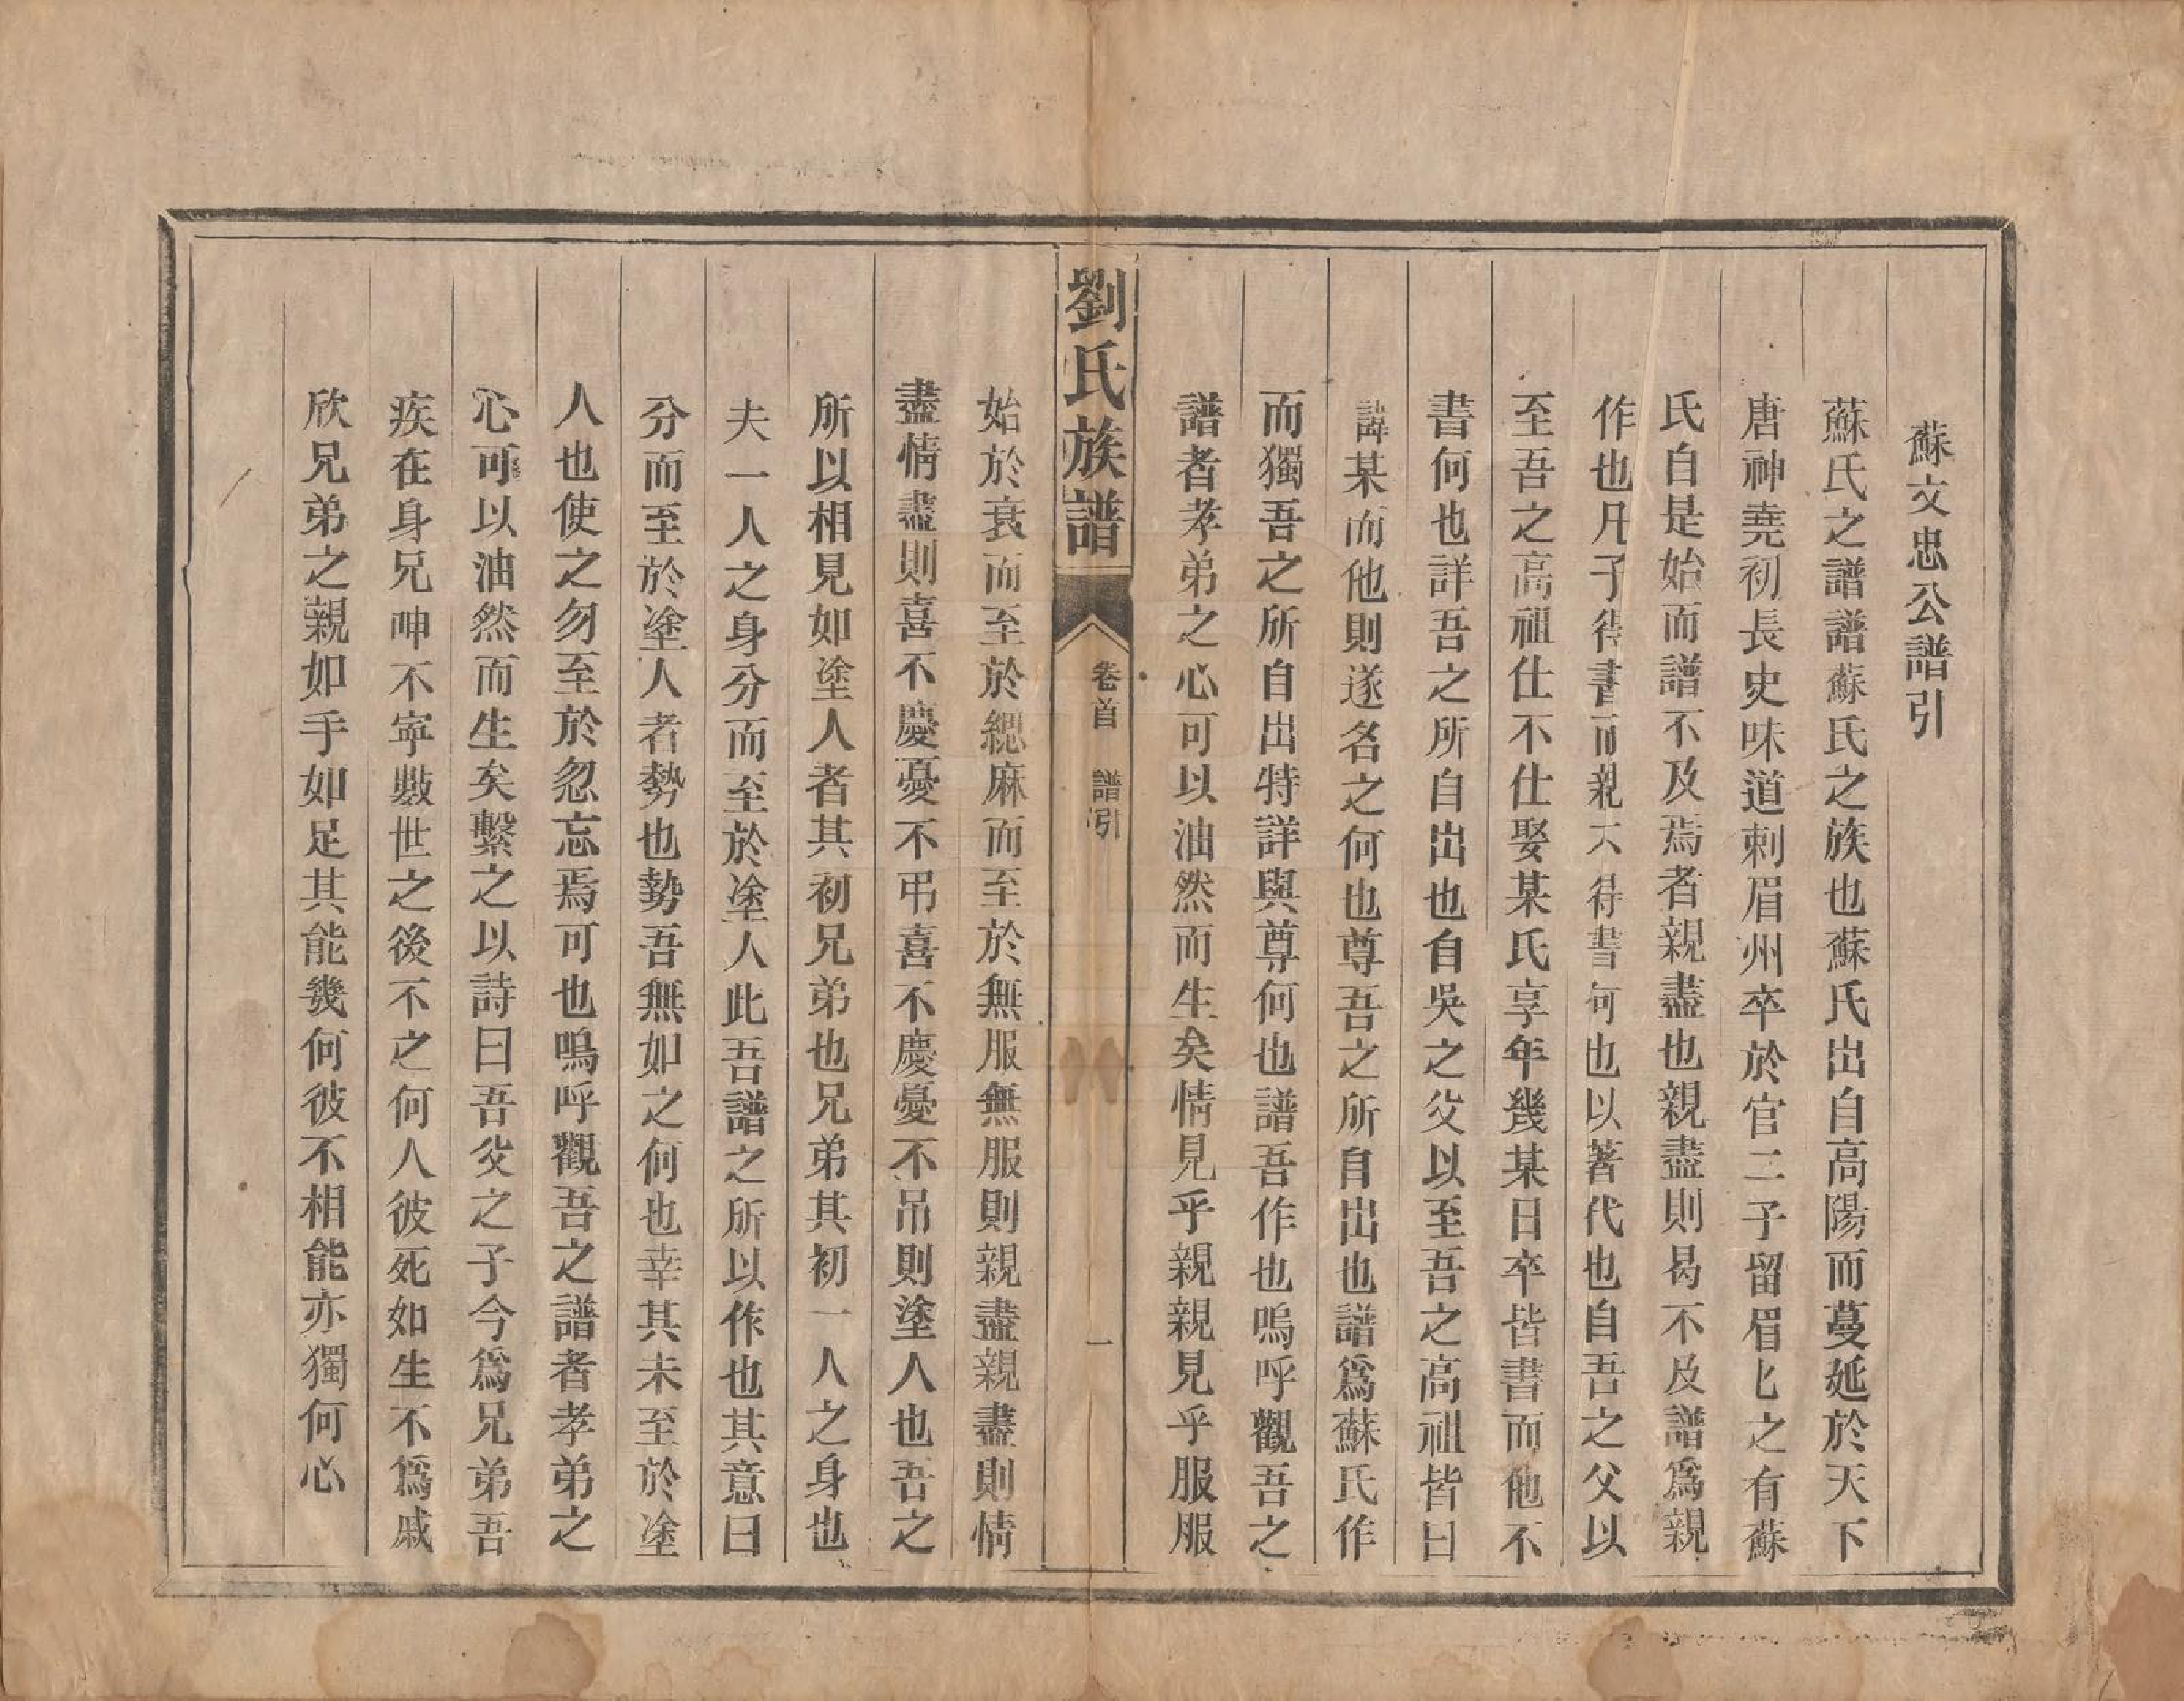 蘇文忠公譜引
蘇氏之譜譜蘇氏之族也蘇氏出自高陽而蔓延於天下
唐神堯初長史味道刺眉州卒於官二子留眉匕之有蘇
氏自是始而譜不及焉者親盡也親盡則曷不及譜爲親
作也凡子得書而親不得書何也以著代也自吾之父以
至吾之高祖仕不仕娶某氏享年幾某日卒皆書而他不
書何也詳吾之所自出也自吳之父以至吾之高祖皆曰
諱某而他則遂名之何也尊吾之所自出也譜爲蘇氏作
而獨吾之所自出特詳與尊何也譜吾作也嗚呼觀吾之
譜者孝弟之心可以油然而生矣情見乎親親見乎服服
劉氏族譜 卷首 譜引 一
始於衰而至於緦麻而至於無服無服則親盡親盡則情
盡情盡則喜不慶憂不弔喜不慶憂不吊則塗人也吾之
所以相見如塗人者其初兄弟也兄弟其初一人之身也
夫一人之身分而至於塗人此吾譜之所以作也其意曰
分而至於塗人者勢也勢吾無如之何也幸其未至於塗
人也使之勿至於忽忘焉可也嗚呼觀吾之譜者孝弟之
心可以油然而生矣繫之以詩曰吾父之子今爲兄弟吾
疾在身兄呻不寧數世之後不之何人彼死如生不爲戚
欣兄弟之親如手如足其能幾何彼不相能亦獨何心